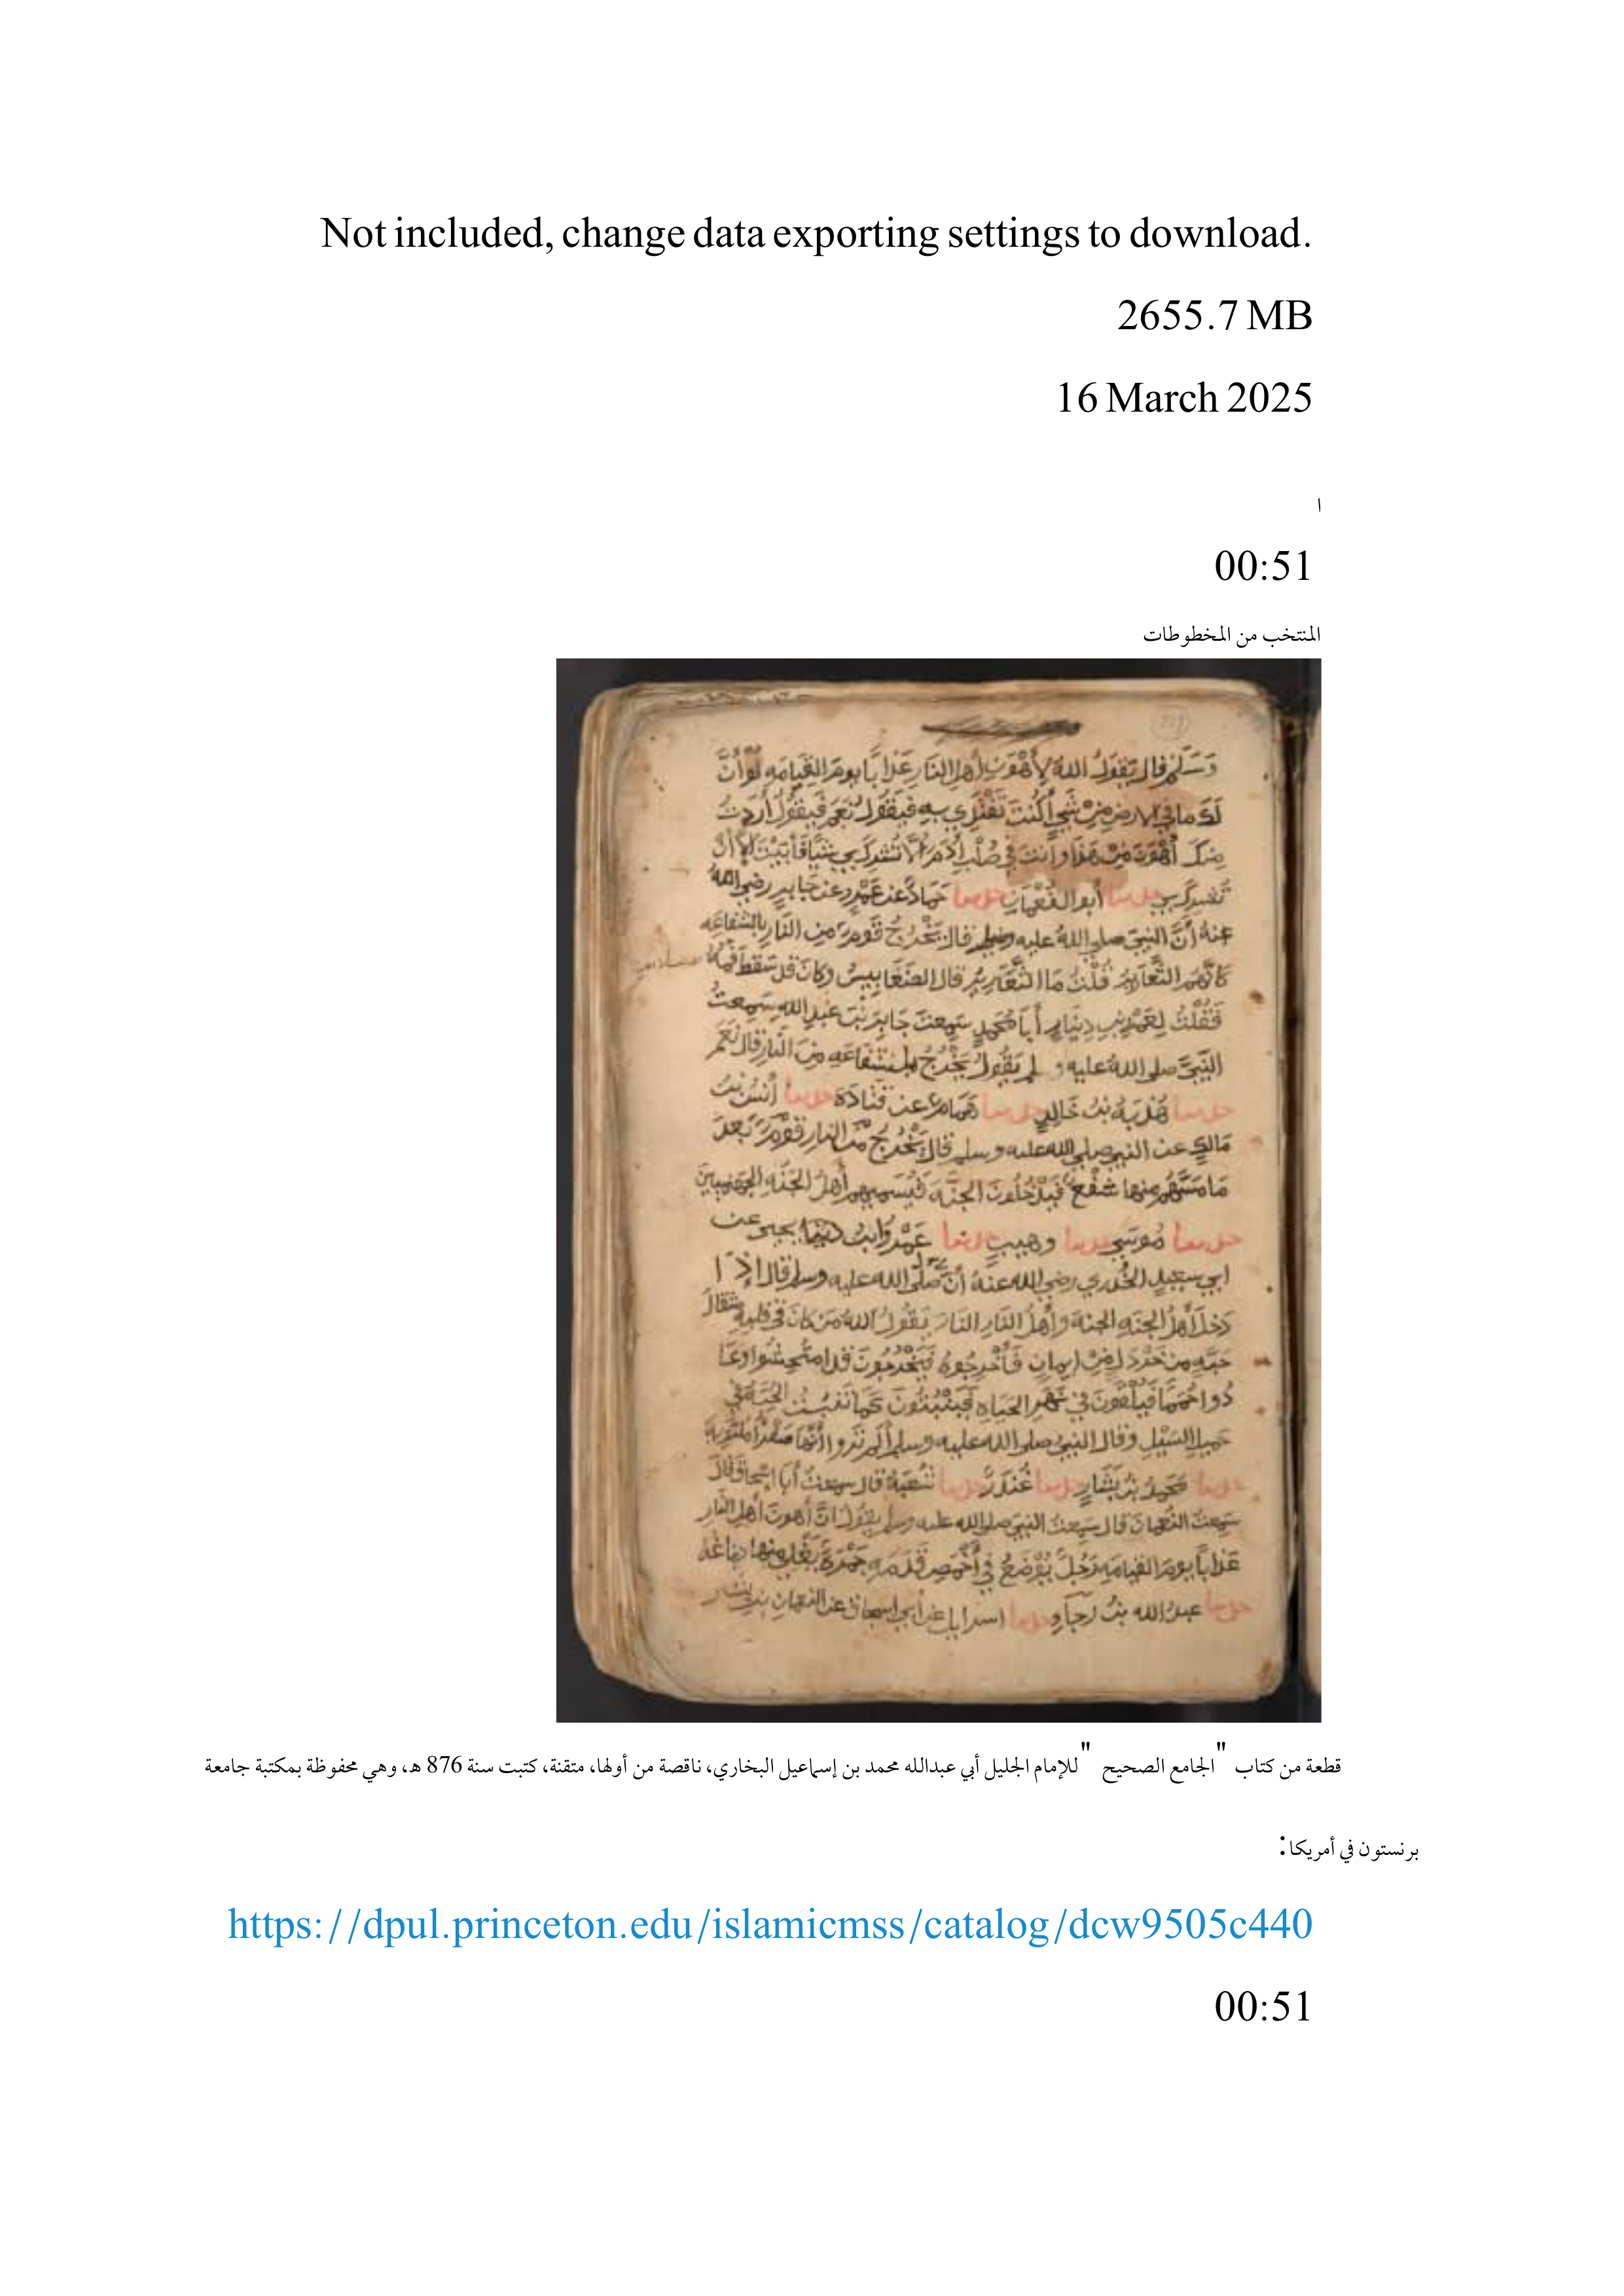 Not included, change data exporting settings to download.
2655.7 MB
16 March 2025
ا
00:51
المنتخب من المخطوطات
وَسَلَّمَ قال يَقولُ اللهُ لِأهْوَنِ أهلِ النَّارِ عَذابًا يومَ القِيامَهِ لَوْ أنَّ
لَكَ ما في الارضِ مِنْ شَيْءٍ أكُنْتَ تَفْتَدِي بِهِ فَيَقُولُ نَعَمْ فَيقُولُ أرَدْتُ
مِنكَ أهْوَنَ مِنْ هَذا وأنتَ في صُلْبِ آدَمَ ألَّا تُشرِكَ بي شَيْئًا فأبَيْتَ إلا أنْ
تُشرِكَ بي حدثنا أبو النُّعْمانِ حدثنا حَمَّادٌ عن عَمْرٍو عن جَابِرٍ رضي الله
عنهُ أنَّ النبيَّ صلى اللهُ عليه وسلم قال يَخْرُجُ قَومٌ مِن النارِ بالشَّفاعَهِ
كَأنَّهم الثَّعارِيرُ قُلْتُ ما الثَّعَارِيرُ قال الضَّغَابِيسُ وكانَ قد سَقَطَ فَمُهُ
فَقُلْتُ لِعَمْرِو بنِ دِينَارٍ أبا مُحَمَّدٍ سَمِعتَ جَابِرَ بنَ عبدِ اللهِ سَمِعتُ
النَّبيَّ صلى اللهُ عليه و لم يَقُولُ يَخْرُجُ بالشَّفَاعَهِ مِنَ النَّارِ قال نَعَمْ
حدثنا هُدْبَهُ بنُ خَالِدٍ حدثنا هَمَّامٌ عن قَتَادَهَ حدثنا أنَسُ بنُ
مَالِكٍ عن النبيِّ صلى الله عليه وسلم قال يَخْرُجُ مِنَ النارِ قَوْمٌ بَعدَ
مَا مَسَّهُمْ منها سَفْعٌ فَيَدْخُلُونَ الجَنَّهَ فَيُسَمِّيهِم أهلُ الجَنَّهِ الجَهَنَّمِيِّينَ
حدثنا مُوسَى حدثنا وهيب حدثنا عَمْرُو ابنُ يحيى عن
ابي سَعِيدٍ الخُدري رضي الله عنهُ أنَّ صَلَّى الله عليه وسلم قال إذا
دَخَلَ أهْلُ الجَنَّهِ الجنهَ وأهْلُ النَّارِ النَّارَ يَقُولُ اللهُ مَن كانَ في قلبِهِ مِثقالُ
حَبَّهٍ مِن خَرْدَلٍ مِنْ إيمانٍ فَأخْرِجُوهُ فَيَخْرُجُونَ قَدِ امْتُحِشُوا وعَا
دُوا حُمَمًا فَيُلْقَوْنَ في نَهَرِ الحَياهِ فَيَنْبُتُونَ كَمَا تَنْبُتُ الحِبَّهُ في
حَمِيلِ السَّيْلِ وقال النبيُّ صلى الله عليه وسلم ألم تَرَوا أنَّها صَفْرَا مُلْتَوِيَهً
حدثنا مُحَمَّدُ بنُ بَشَّارٍ حدثنا غُنْدَرٌ حدثنا شُعْبَهُ قال سمعتُ أبا إسْحاقَ قالَ
سَمِعتُ النُّعمانَ قال سَمِعتُ النبيَّ صلى الله عليه وسلم يقُولُ إنَّ أهونَ أهلِ النَّارِ
عَذابًا يومَ القيامَهِ رَجُلٌ يُوضَعُ في أخْمَصِ قَدَمَيهِ جَمْرَهٌ يَغْلي منها دِماغُهُ
حدثنا عبدُ الله بنُ رَجاءٍ حدثنا اسرايل عن أبي اسحاق عن النعمانِ بن بشير
قطعة من كتاب "الجامع الصحيح" للإمام الجليل أبي عبدالله محمد بن إسماعيل البخاري، ناقصة من أولها، متقنة، كتبت سنة 876 هـ، وهي محفوظة بمكتبة جامعة
برنستون في أمريكا:
https://dpul.princeton.edu/islamicmss/catalog/dcw9505c440
00:51